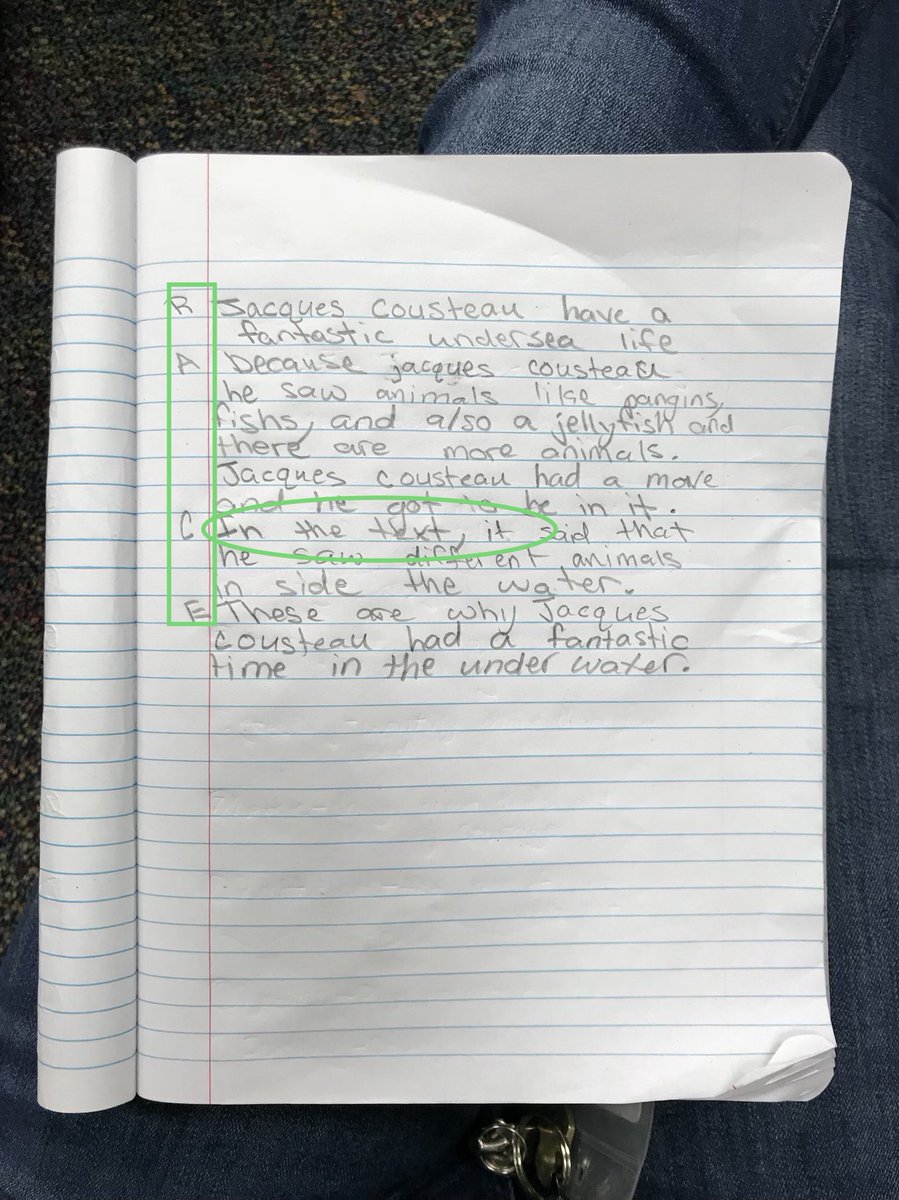 R Jacques Cousteau have a
fantastic undersea life
A because jacques cousteau
he saw animals like pangins,
fishs, and also a jellyfish and
there are more animals.
Jacques Cousteau had a move
and he got to be in it.
C In the text, it said that
he saw different animals
in side the water.
E These are why Jacques
Cousteau had a fantastic
time in the under water.